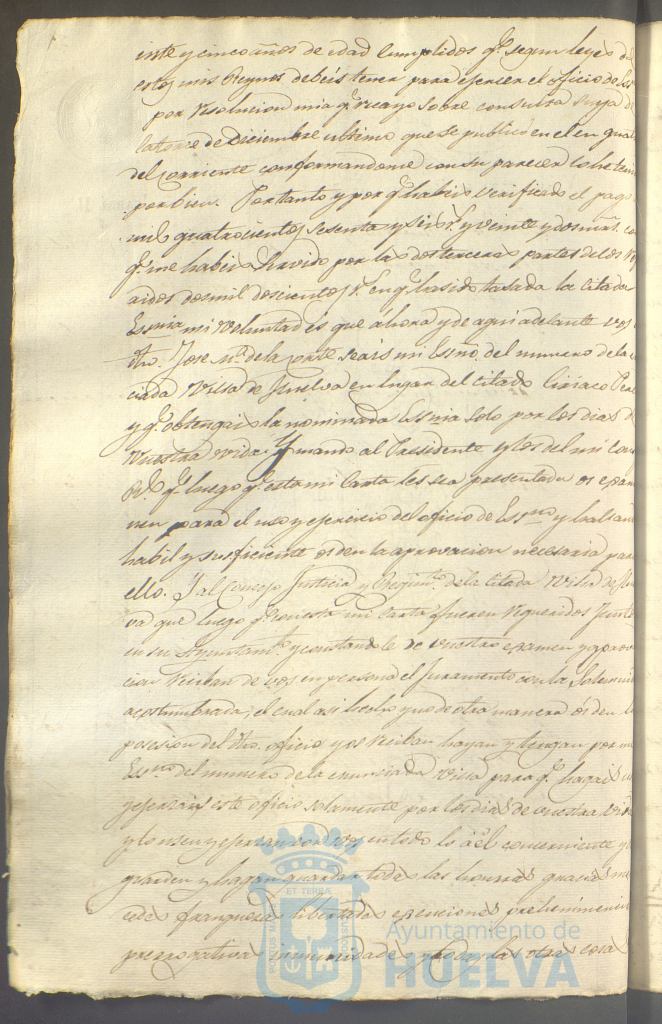 inte y cinco años de edad cumplidos q.e segun leyes de
estos mis Reynos debeis tener para ejercer el oficio de Es
por resolucion mia q.e recayo sobre consulta suya de
catorce de Diciembre ultimo que se publicó en el en qua
del corriente conformandome con su parecer lo he teni
por bien. Por tanto y por q.e habeis verificado el pago
mil quatrocientos sesenta y seis r.s y veinte y dos mrs. co
q.e me habeis servido por las dos terceras partes de los
dos mil doscientos r.s en q.e ha sido tasada la citada
Esnia mi voluntad es que ahora y de aqui adelante vos
dho. Jose M.a de la Corte seais mi Esno. del numero de la
ciada Villa de Huelva en lugar del citado Ciriaco Per
y q.e obtengais la nominada Esnia solo por los dias d
vuestra vida. Y mando al Presidente y los del mi Con
R.l q.e luego q.e esta mi Carta les sea presentada os exam
nen para el uso y ejercicio del oficio de Esno. y hallan
habil y suficiente os den la aprovacion necesaria para
ello. Y al Concejo Justicia y Regim.to de la citada Villa de Huel
va que luego q.e con esta mi Carta fueren requeridos junto
en su Ayuntam.to y constandole de vuestro examen y aprov
cion reciban de vos en persona el Juramento con la Solemni
acostumbrada, el cual asi hecho y no de otra manera os den la
posesion del dho. oficio y os reciban hayan y tengan por mi
Esno. del numero de la enunciada Villa para q.e hagais
y ejerzais este oficio solamente por los dias de vuestra vida
y lo usen y ejerzan con vos en todo lo a él concerniente y
guarden y hagan guardar todas las honras gracias me
cedes franquezas libertades exenciones preheminencia
prerrogativas inmunidades y todas las otras cosas
ET TERRÆ
PORTUS MA
CUSTODIA
Ayuntamiento de
HUELVA